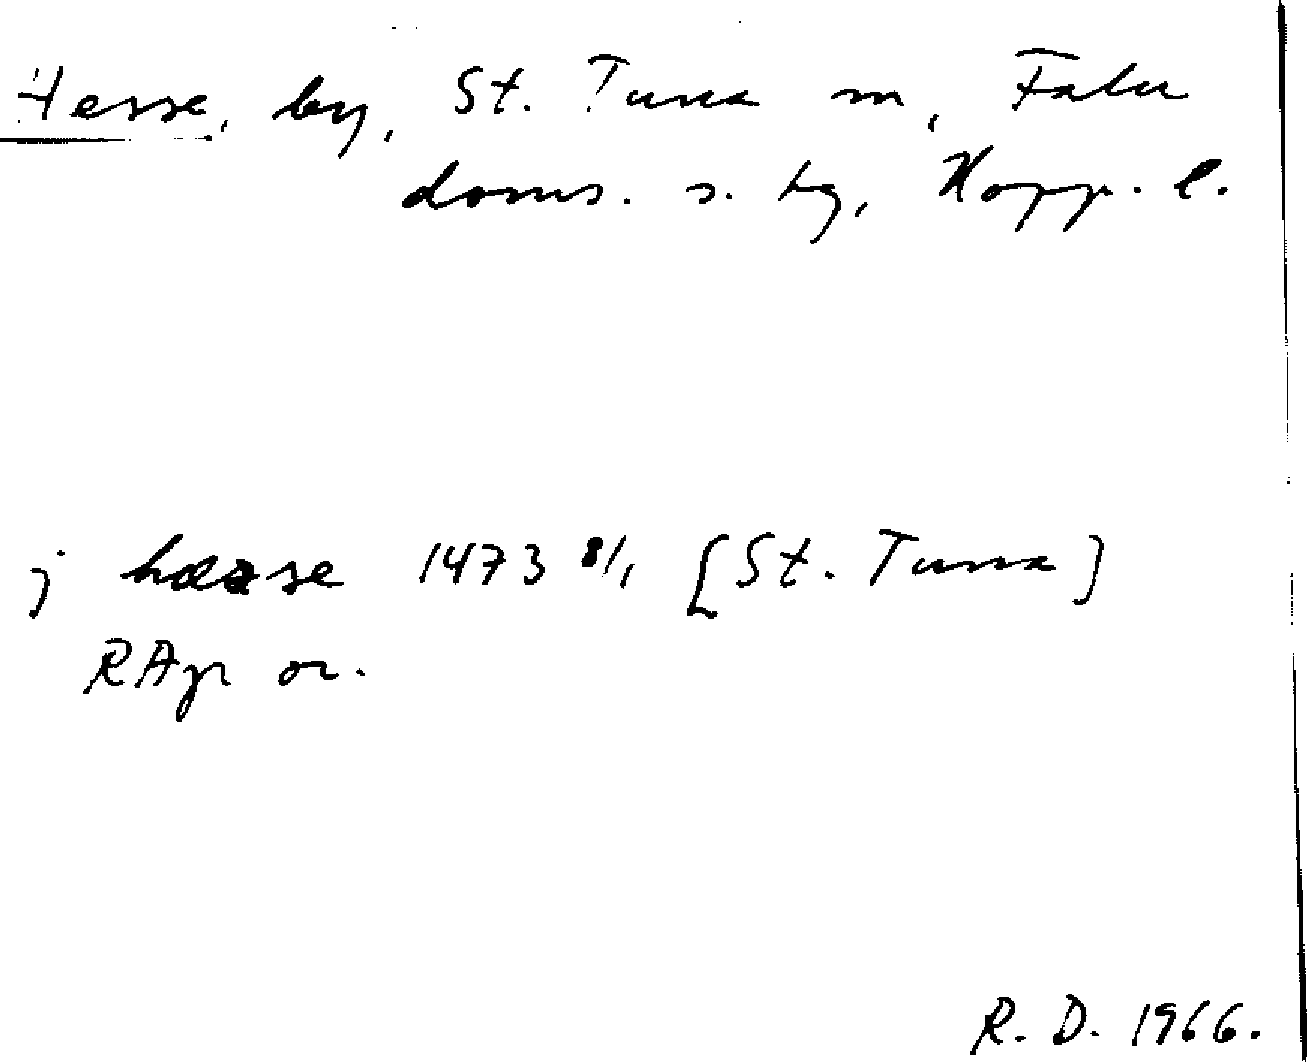 Hesse, by, St. Tuna sn, Falu
doms. s. tg, Kopp. l.
j hæsse 1473 8/1 [St. Tuna]
RAp or.
R. D. 1966.